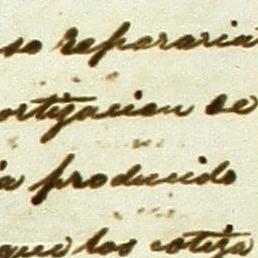 se repararia
ortizacion se
ia producido
que los cotiza